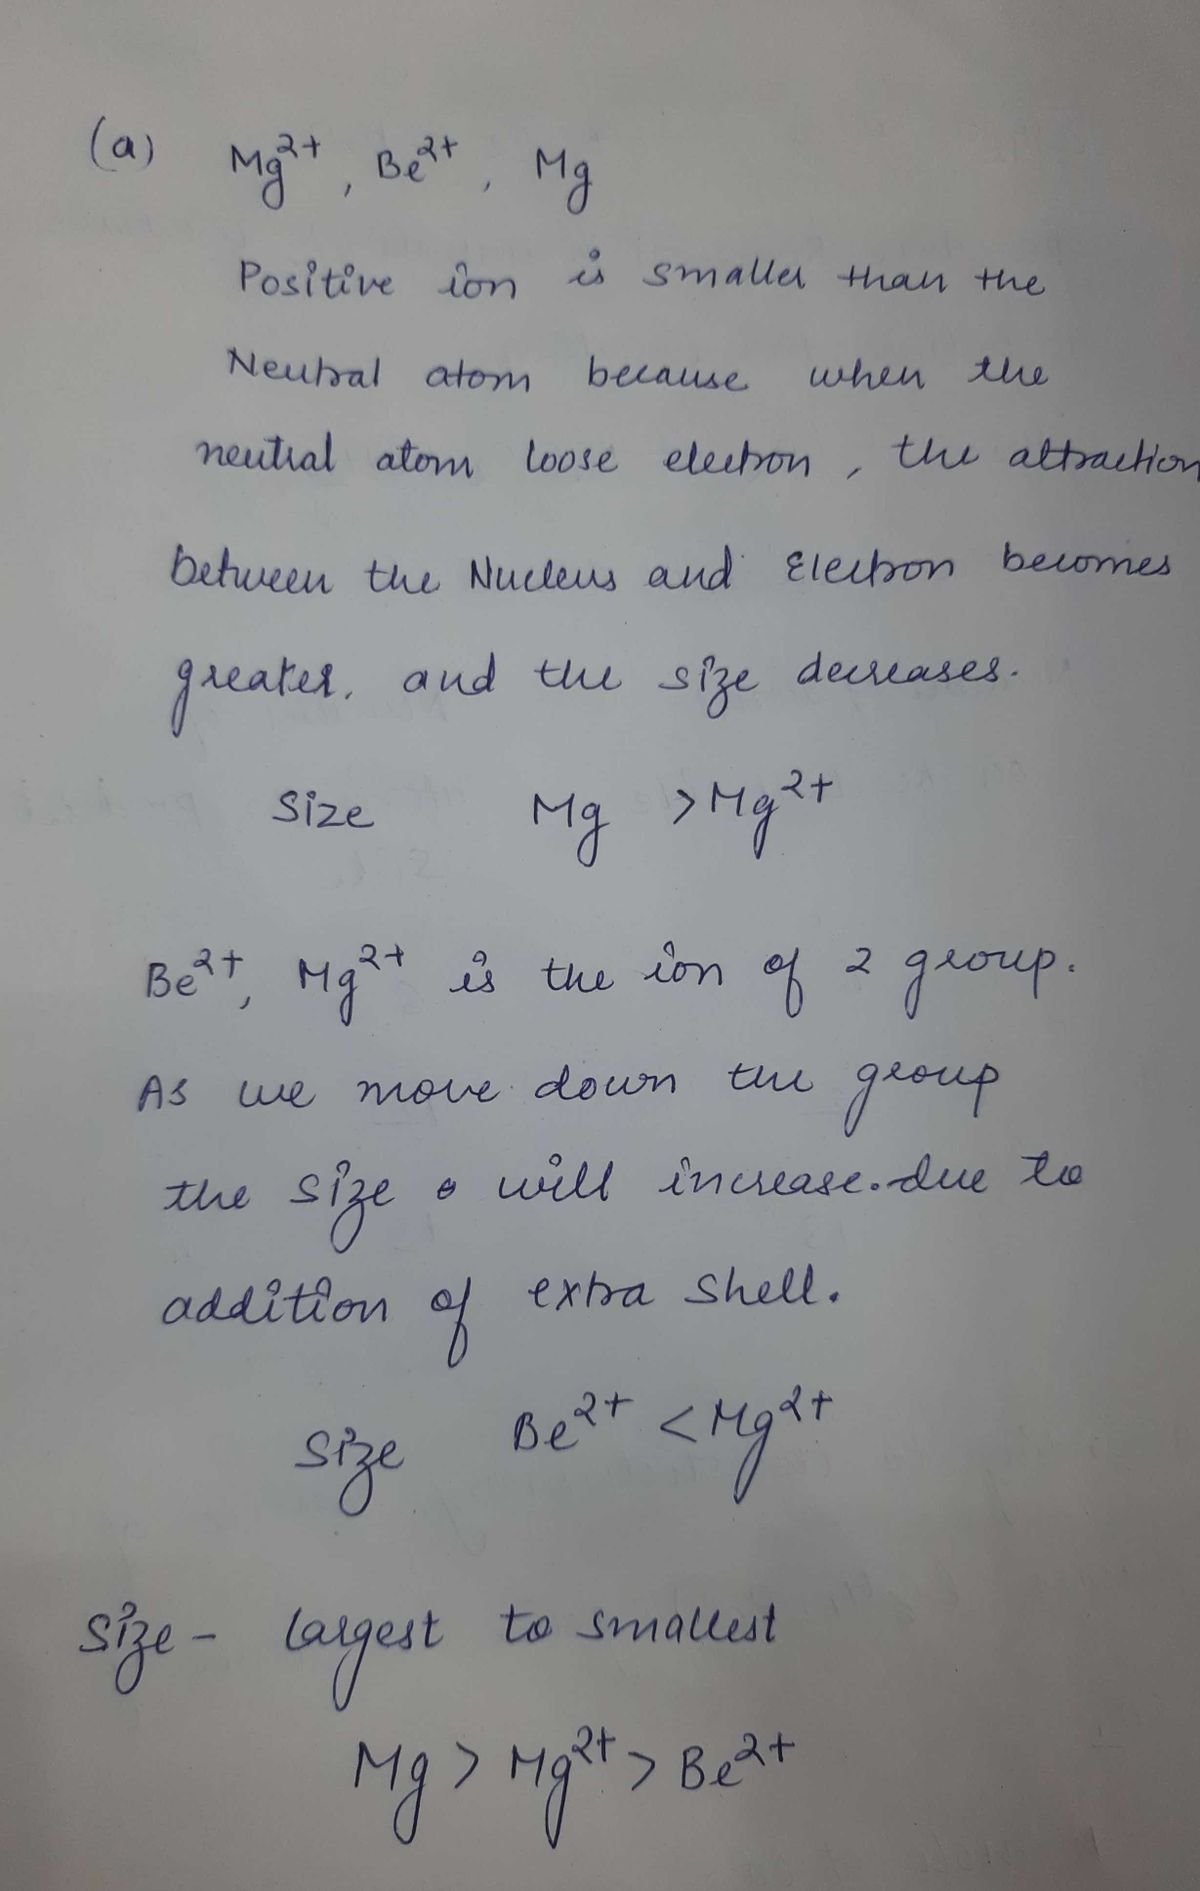 (a) Mg²⁺, Be²⁺, Mg
Positive ion is smaller than the
Neutral atom because when the
neutral atom loose electron, the attraction
between the Nucleus and Electron becomes
greater. and the size decreases.
Size Mg > Mg²⁺
Be²⁺, Mg²⁺ is the ion of 2 group.
As we move down the group
the size will increase. due to
addition of extra shell.
Size Be²⁺ < Mg²⁺
Size - largest to smallest
Mg > Mg²⁺ > Be²⁺